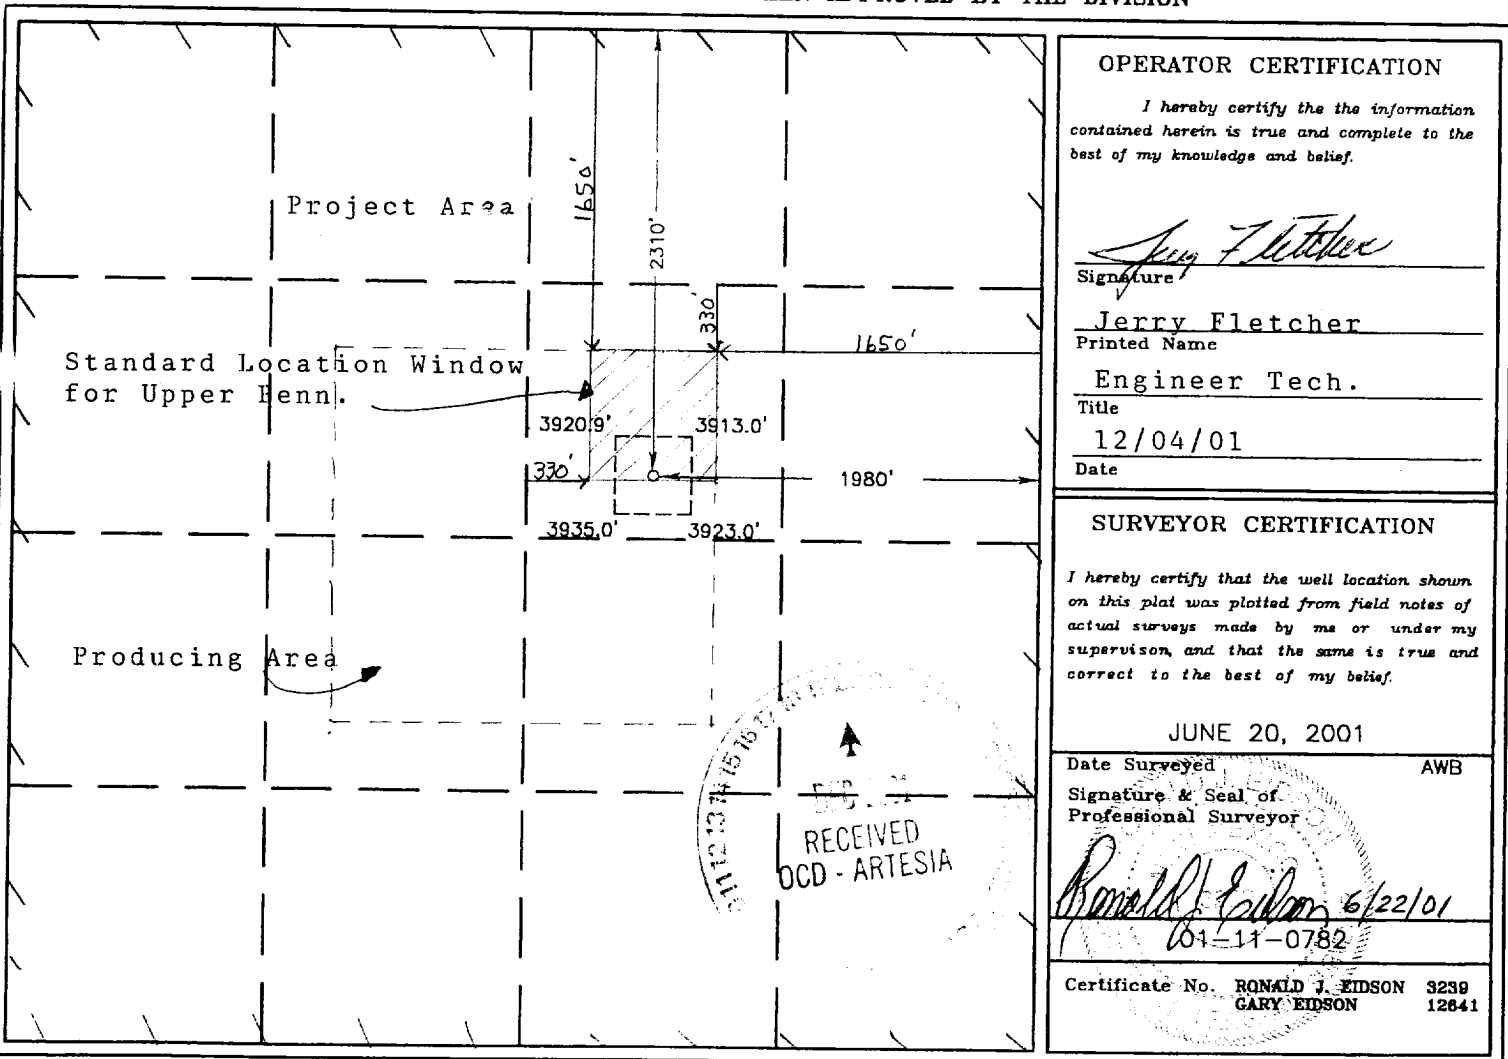 BY THE DIVISION
Project Area
1650'
2310'
330'
1650'
Standard Location Window
for Upper Penn.
3920.9'
3913.0'
330'
1980'
3935.0'
3923.0'
Producing Area
11 12 13 14 15 16 17
RECEIVED
OCD - ARTESIA
OPERATOR CERTIFICATION
I hereby certify the the information
contained herein is true and complete to the
best of my knowledge and belief.
Jerry Fletcher
Signature
Jerry Fletcher
Printed Name
Engineer Tech.
Title
12/04/01
Date
SURVEYOR CERTIFICATION
I hereby certify that the well location shown
on this plat was plotted from field notes of
actual surveys made by me or under my
supervison, and that the same is true and
correct to the best of my belief.
JUNE 20, 2001
Date Surveyed AWB
Signature & Seal of
Professional Surveyor
Ronald J. Eidson 6/22/01
01-11-0782
Certificate No. RONALD J. EIDSON 3239
GARY EIDSON 12641